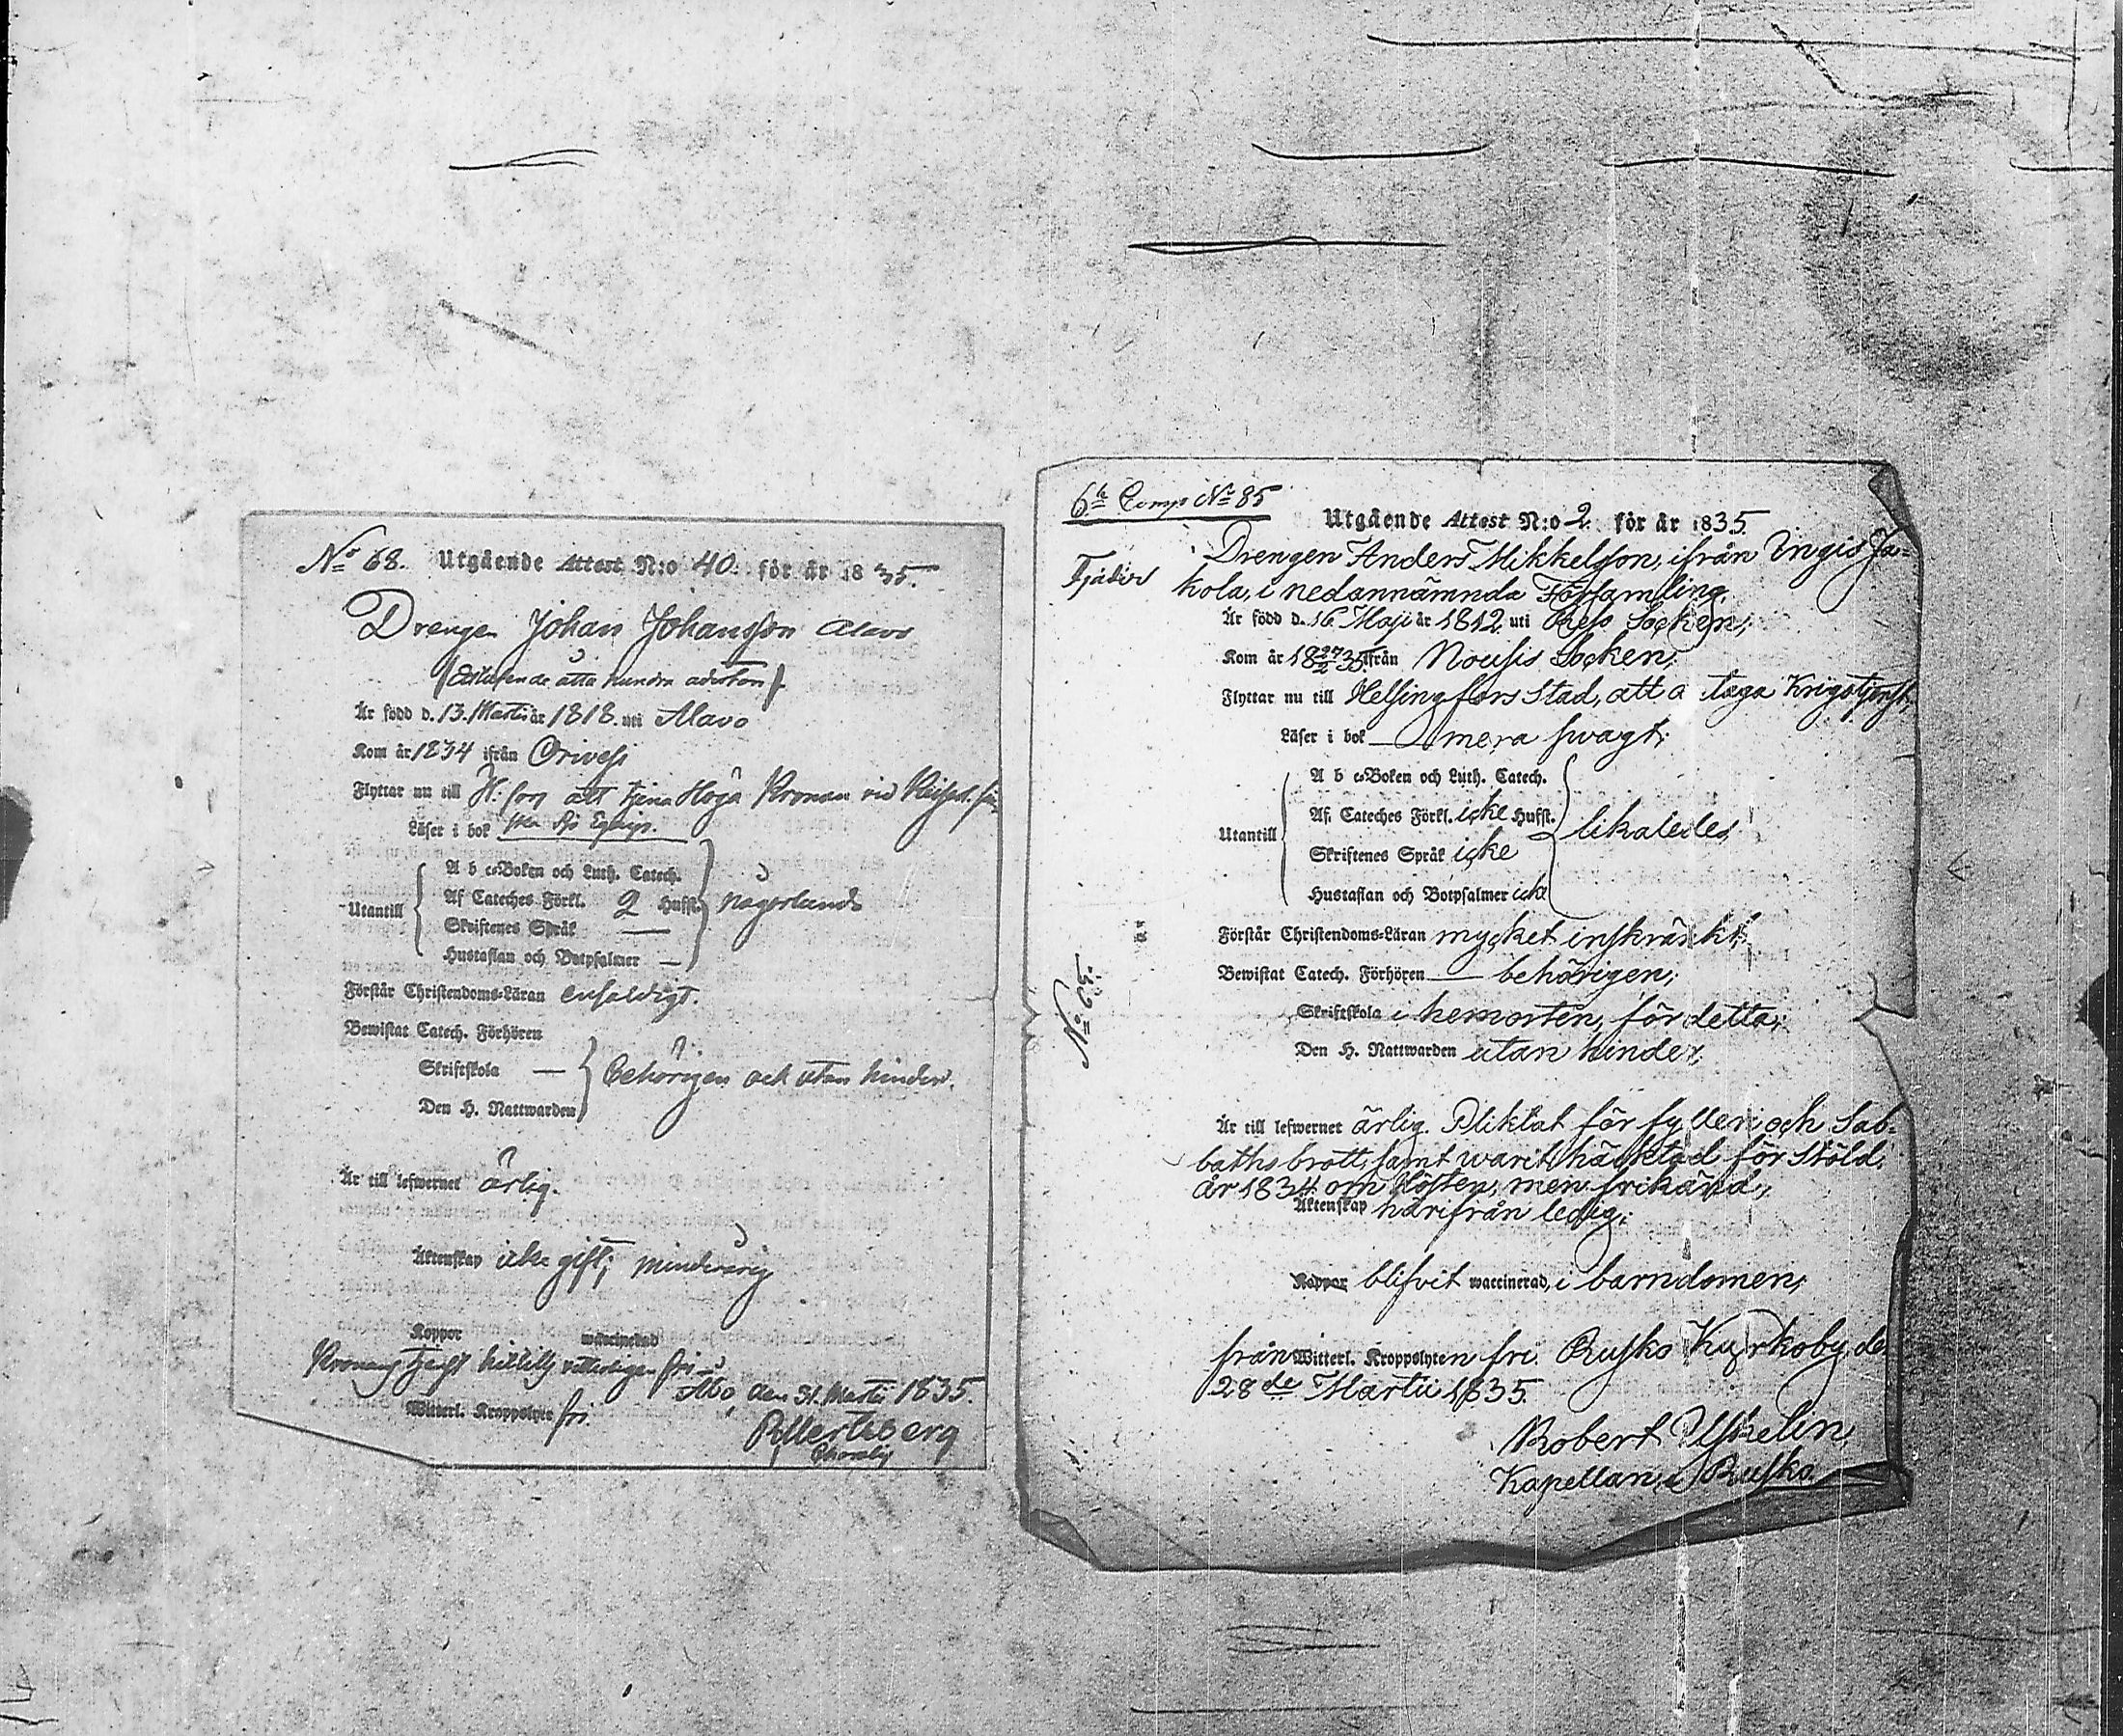 No 68. Utgående Attest N:o 40. för år 1835.
Drengen Johan Johansson Alavo
(Ettusende åtta hundra aderton)
Är född d. 13. Martii år 1818. uti Alavo
Kom år 1834 ifrån Orivesi
Flyttar nu till H:fors att tjena Höga Kronan vid
Läser i bok Sjö Equip.
A b c-Boken och Luth. Catech.
Utantill Af Cateches Förkl. 2 Hufst. någorlunda
Skriftenes Språk —
Hustaflan och Botpsalmer —
Förstår Christendoms-Läran enfaldigt.
Bewistat Catech. Förhören
Skriftskola — behörigen och utan hinder.
Den H. Nattwarden
Är till lefwernet ärlig.
Äktenskap icke gift; minderårig
Koppor waccinerad
Kronans tjenst fri.
Åbo, den 31. Martii 1835.
Witterl. Kroppslyte fri.

6te Comp No 85
Utgående Attest N:o 2. för år 1835.
Drengen Anders Mikkelsson, ifrån Ja-
kola, i nedannämnda Församling,
Är född d. 16. Maji år 1812. uti Socken;
Kom år 18 27/2 35 ifrån Nousis Socken;
Flyttar nu till Helsingfors Stad, att taga Krigstjenst;
Läser i bok — mera swagt;
A b c-Boken och Luth. Catech.
Af Cateches Förkl. icke Hufst.
Utantill likaledes
Skriftenes Språk icke
Hustaflan och Botpsalmer icke
Förstår Christendoms-Läran mycket inskränkt;
Bewistat Catech. Förhören — behörigen;
No 65.
Skriftskola i hemorten, för detta;
Den H. Nattwarden utan hinder;
Är till lefwernet ärlig. Pliktat för fylleri och Sab-
bathsbrott, samt warit häktad för Stöld,
år 1834 om Hösten, men frikänd;
Äktenskap härifrån ledig;
Koppor blifvit waccinerad, i barndomen;
från Witterl. Kroppslyten fri. Rusko Kyrkoby, de
28de Martii 1835.
Robert Uskelin,
Kapellan i Rusko.